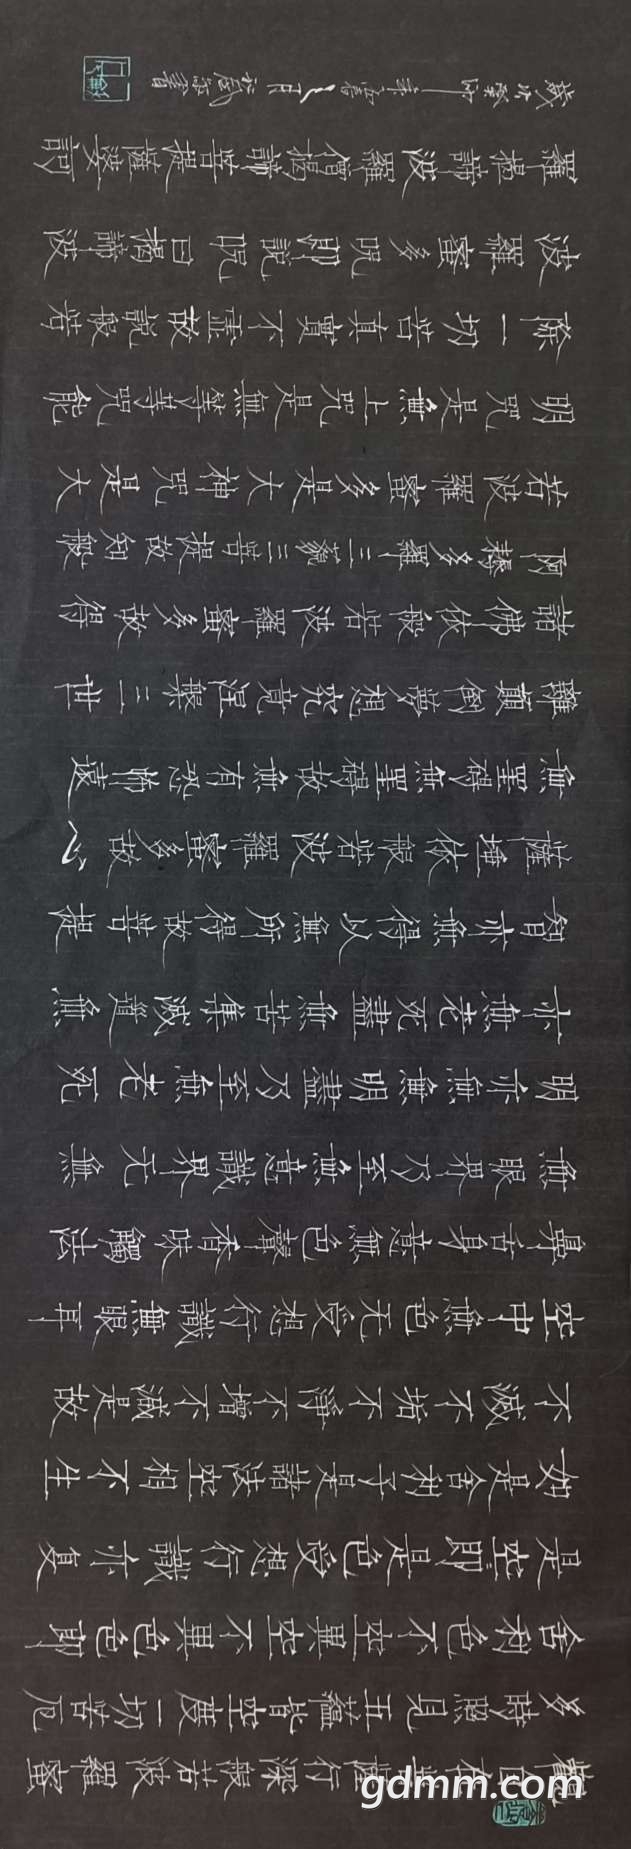 觀自在菩薩行深般若波羅蜜
多時照見五蘊皆空度一切苦厄
舍利色不空異空不異色色即
是空即是色受想行識亦复
如是舍利子是諸法空相不生
不滅不垢不淨不增不減是故
空中無色无受想行識無眼耳
鼻舌身意無色聲香味觸法
無眼界乃至無意識界无無
明亦無無明盡乃至無老死
亦無老死盡無苦集滅道無
智亦無得以無所得故菩提
薩埵依般若波羅蜜多故心
無罣碍無罣碍故無有恐怖遠
離顛倒夢想究竟涅槃三世
諸佛依般若波羅蜜多故得
阿耨多羅三藐三菩提故知般
若波羅蜜多是大神咒是大
明咒是無上咒是無等等咒能
除一切苦真實不虛故說般若
波羅蜜多咒即說咒曰揭諦波
羅揭諦波羅僧揭諦菩提薩婆訶
歲次癸卯年 月 書
gdmm.com